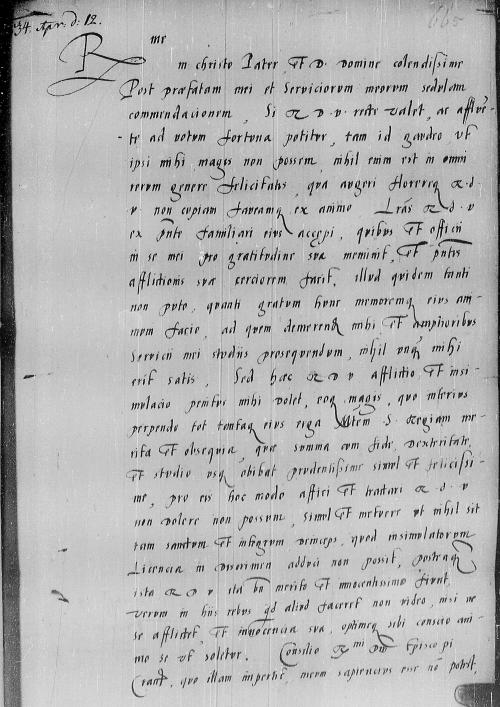 34. Apr. d: 12.
665
R me
in christo Pater et D. Domine colendissime
Post præfatam mei et Serviciorum meorum sedulam
commendacionem, Si R D. v. recte valet, ac affluen-
te ad votum fortuna potitur, tam id gaudeo ut
ipsi mihi magis non possem, nihil enim est in omni
rerum genere felicitatis, qua augeri florereq R. d
v non cupiam faveamq ex animo Lras R d v
ex pnte familiari eius accepi, quibus et officii
in se mei pro gratitudine sua meminit, et pntis
afflictionis suæ cerciorem facit, illud quidem tanti
non puto, quanti gratum hunc memoremq eius ani-
mum facio, ad quem demerend mihi et amplioribus
Servicii mei studiis prosequendum, nihil unq mihi
erit satis, Sed hæc R D V afflictio et insi-
mulacio penitus mihi dolet, eoq magis, quo interius
perpendo tot tantaq eius erga S. Regiam me-
rita et obsequia, quæ summa cum fide, dexteritate,
et studio usq obibat prudentissime simul et felicissi-
me, pro eis hoc modo affici et tractari R. d v
non dolere non possum, simul et metuere ut nihil sit
tam sanctum et integrum deinceps, quod insimulatorum
Licencia in discrimen adduci non possit, postraq
ista R D V ita bn merito et innocentissimo fiunt,
verum in his rebus qd aliud faceret non video, nisi ne
se afflictet, et innocencia sua, optimeq sibi conscio ani-
mo se ut soletur. Consilio R mi Dni Episcopi
Crac, quo illam impertit, meum sapiencius esse no potest,